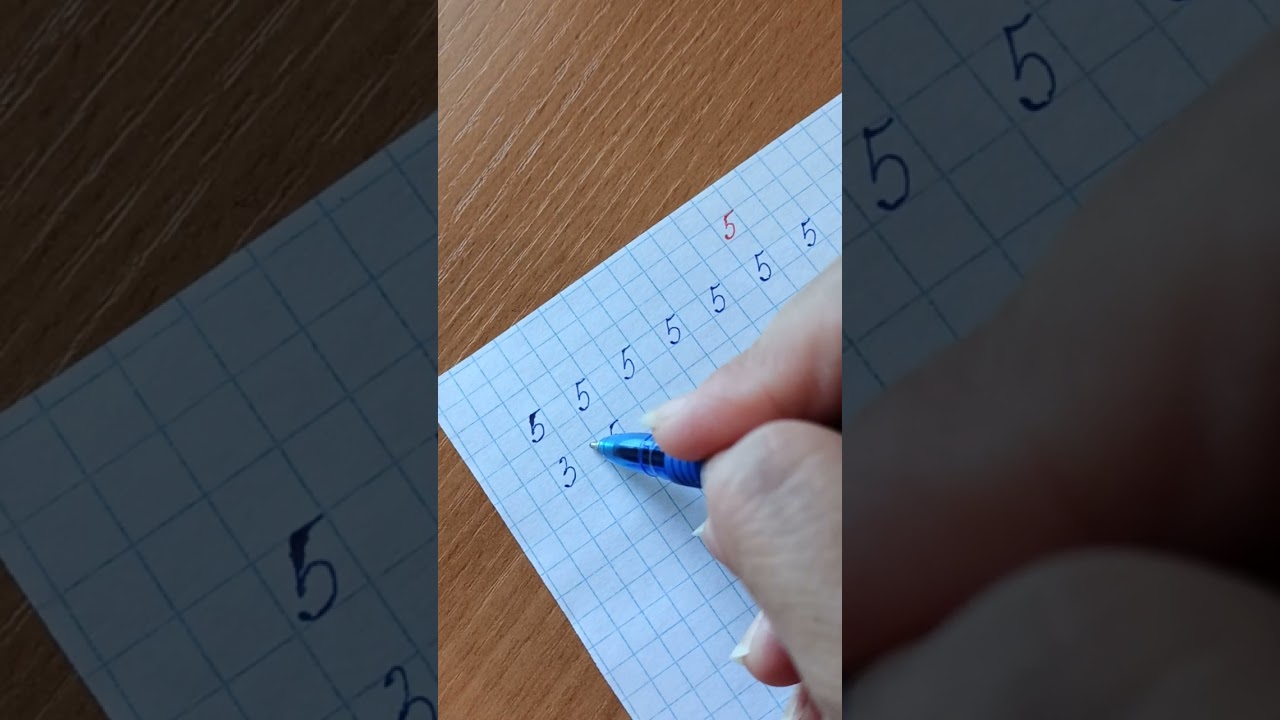 5
5 5 5 5 5 5 5
3 5